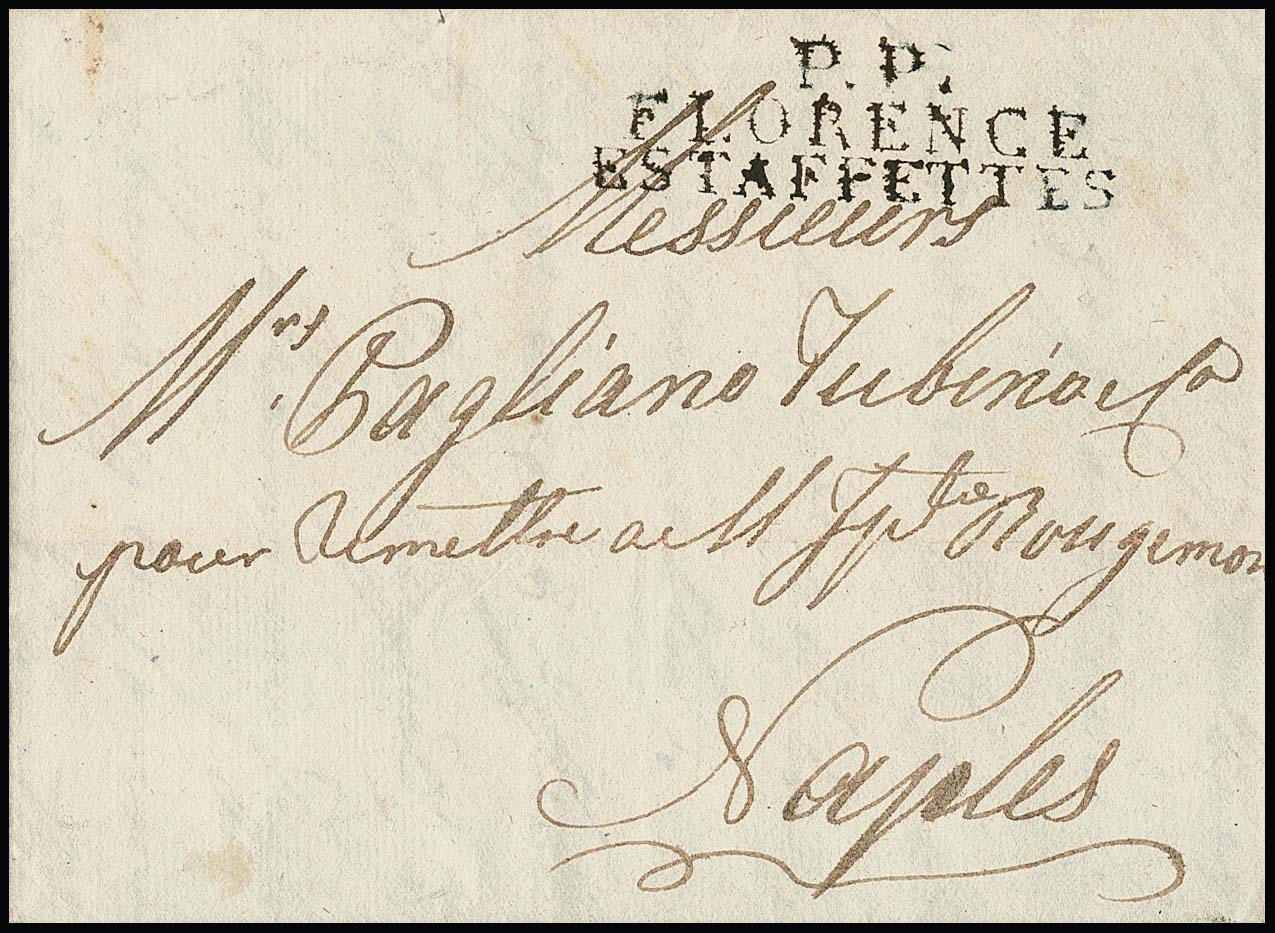 P.P.
FLORENCE
ESTAFFETTES
Messieurs
Mrs. Pagliano Tubino e Co
pour remettre a M Jpte Rougemon
Naples